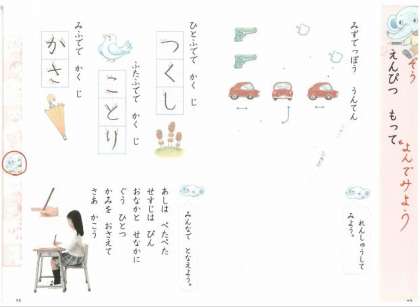 よんでみよう
ぞう
えんぴつ もって
みずでっぽう
うんてん
れんしゅうして
みよう。
ひとふでで かく じ
つくし
ふたふでで かく じ
ことり
みふでで かく じ
かさ
みんなで となえよう。
あしは ぺたぺた
せすじは ぴん
おなかと せなかに
ぐう ひとつ
かみを おさえて
さあ かこう